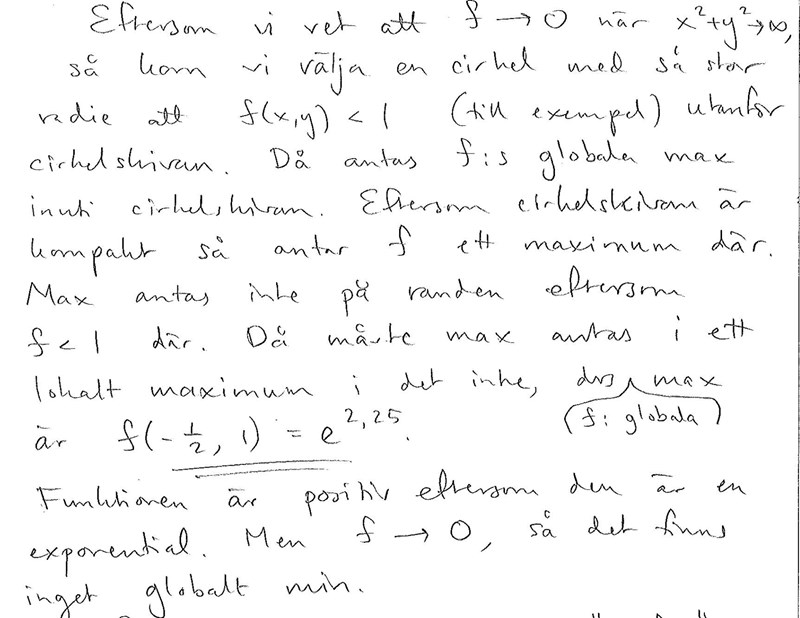 Eftersom vi vet att f → 0 när x²+y²→∞,
så kan vi välja en cirkel med så stor
radie att f(x,y) < 1 (till exempel) utanför
cirkelskivan. Då antas f:s globala max
inuti cirkelskivan. Eftersom cirkelskivan är
kompakt så antar f ett maximum där.
Max antas inte på randen eftersom
f < 1 där. Då måste max antas i ett
lokalt maximum i det inre, dvs max
(f: globala)
är f(-1/2, 1) = e^2,25.
Funktionen är positiv eftersom den är en
exponential. Men f → 0, så det finns
inget globalt min.